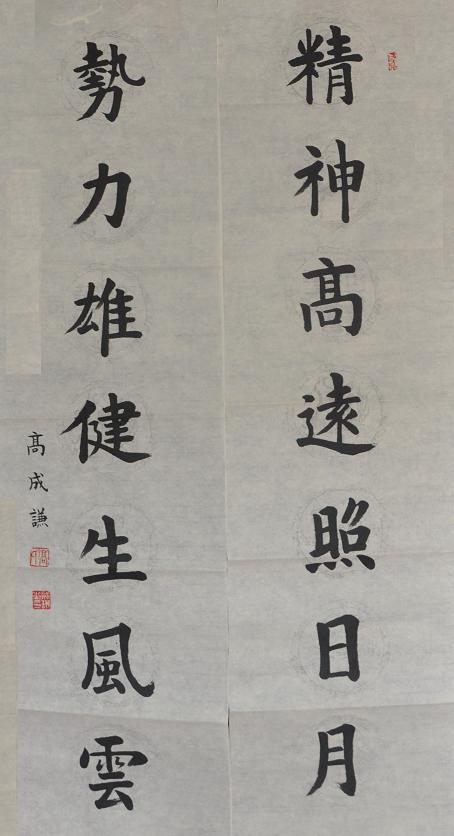 精神髙遠照日月
勢力雄健生風雲
髙成謙